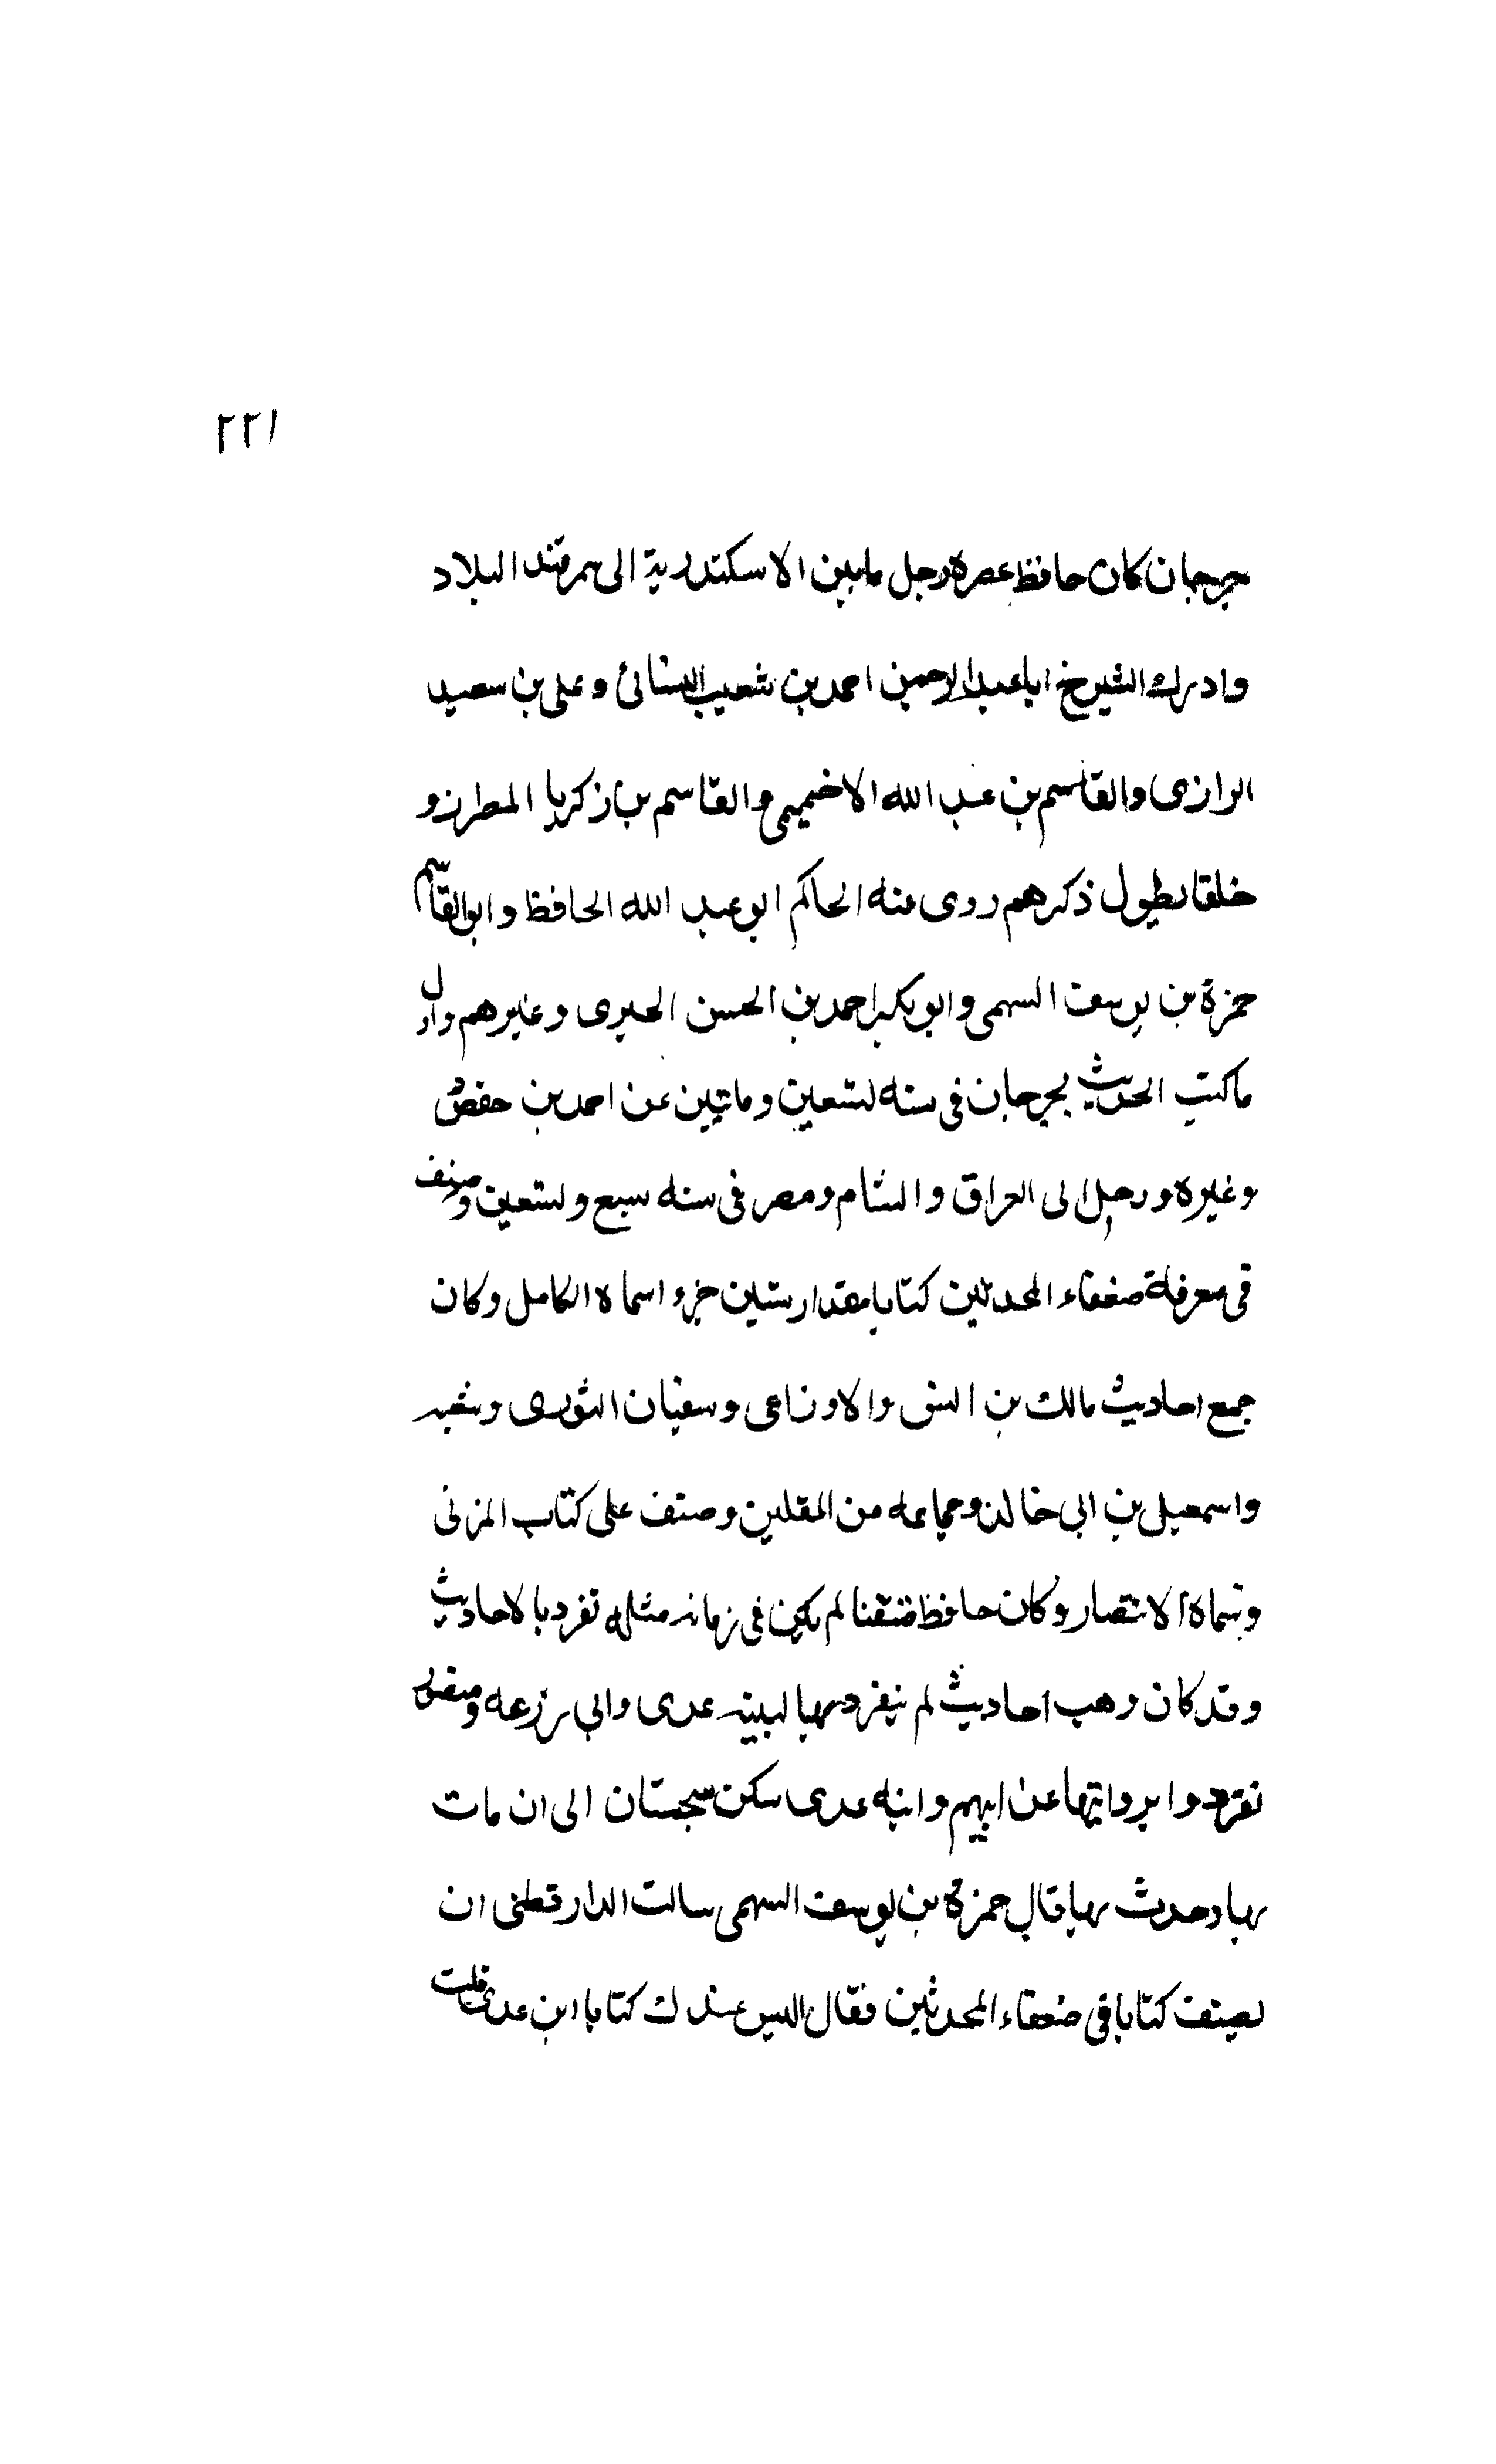 ٢٢١
جرجان كان حافظ عصره رحل مابين الاسكندرية الى سمرقند البلاد
وادرك الشيخ اباعبدالرحمن احمد بن شعيب النسائ وعلى بن سعيد
الرازى والقاسم بن عبد الله الاخميمى والقاسم بن زكريا المطرز و
خلقا يطول ذكرهم روى عنه الحاكم ابو عبد الله الحافظ و ابوالقاسم
حمزة بن يوسف السهمى وابوبكر احمد بن الحسن الحيرى وغيرهم واول
ماكتب الحديث بجرجان فى سنه تسعين ومائتين عن احمد بن حفص
وغيره ورحل الى العراق والشام ومصر فى سنه سبع وتسعين وصنف
فى معرفة ضعفاء المحدثين كتابا مقدار ستين جزء اسماه الكامل وكان
جمع احاديث مالك بن انس والاوزاعى وسفيان الثورى وشعبه
واسمعيل بن ابى خالد وجماعه من المقلين وصنف على كتاب المزنى
وسماه الانتصار وكان حافظ متقنا لم يكن فى زمانه مثله تفرد بالاحاديث
وقد كان وهب احاديث لم يتفرد بها لبنيه عدى وابى زرعه ومنصور
تفردوا برواتيها عن ابيهم وابنه عدى سكن سجستان الى ان مات
بها وحدث بها قال حمزة بن يوسف السهمى سالت الدارقطنى ان
يصنف كتابا فى ضعفاء المحدثين فقال اليس عندك كتاب ابن عدى قلت